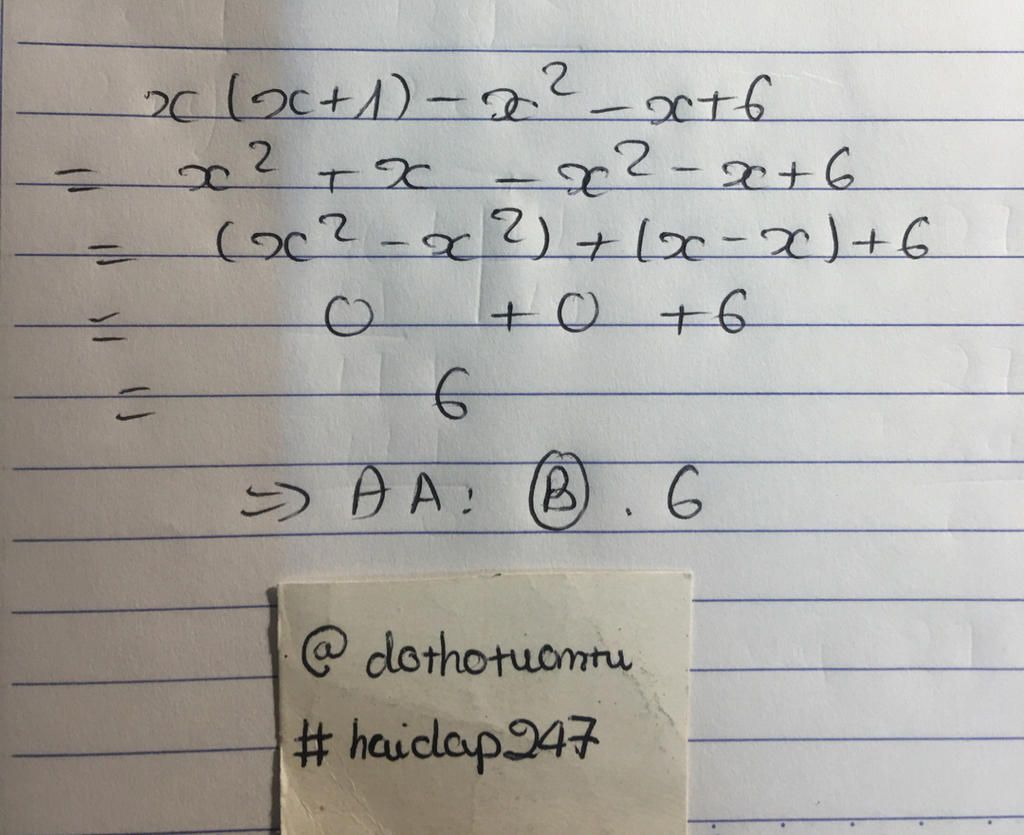 x(x+1) - x² - x + 6
= x² + x - x² - x + 6
= (x² - x²) + (x - x) + 6
= 0 + 0 + 6
= 6
=> AA: B. 6
@dothotuomtu
#haidap247